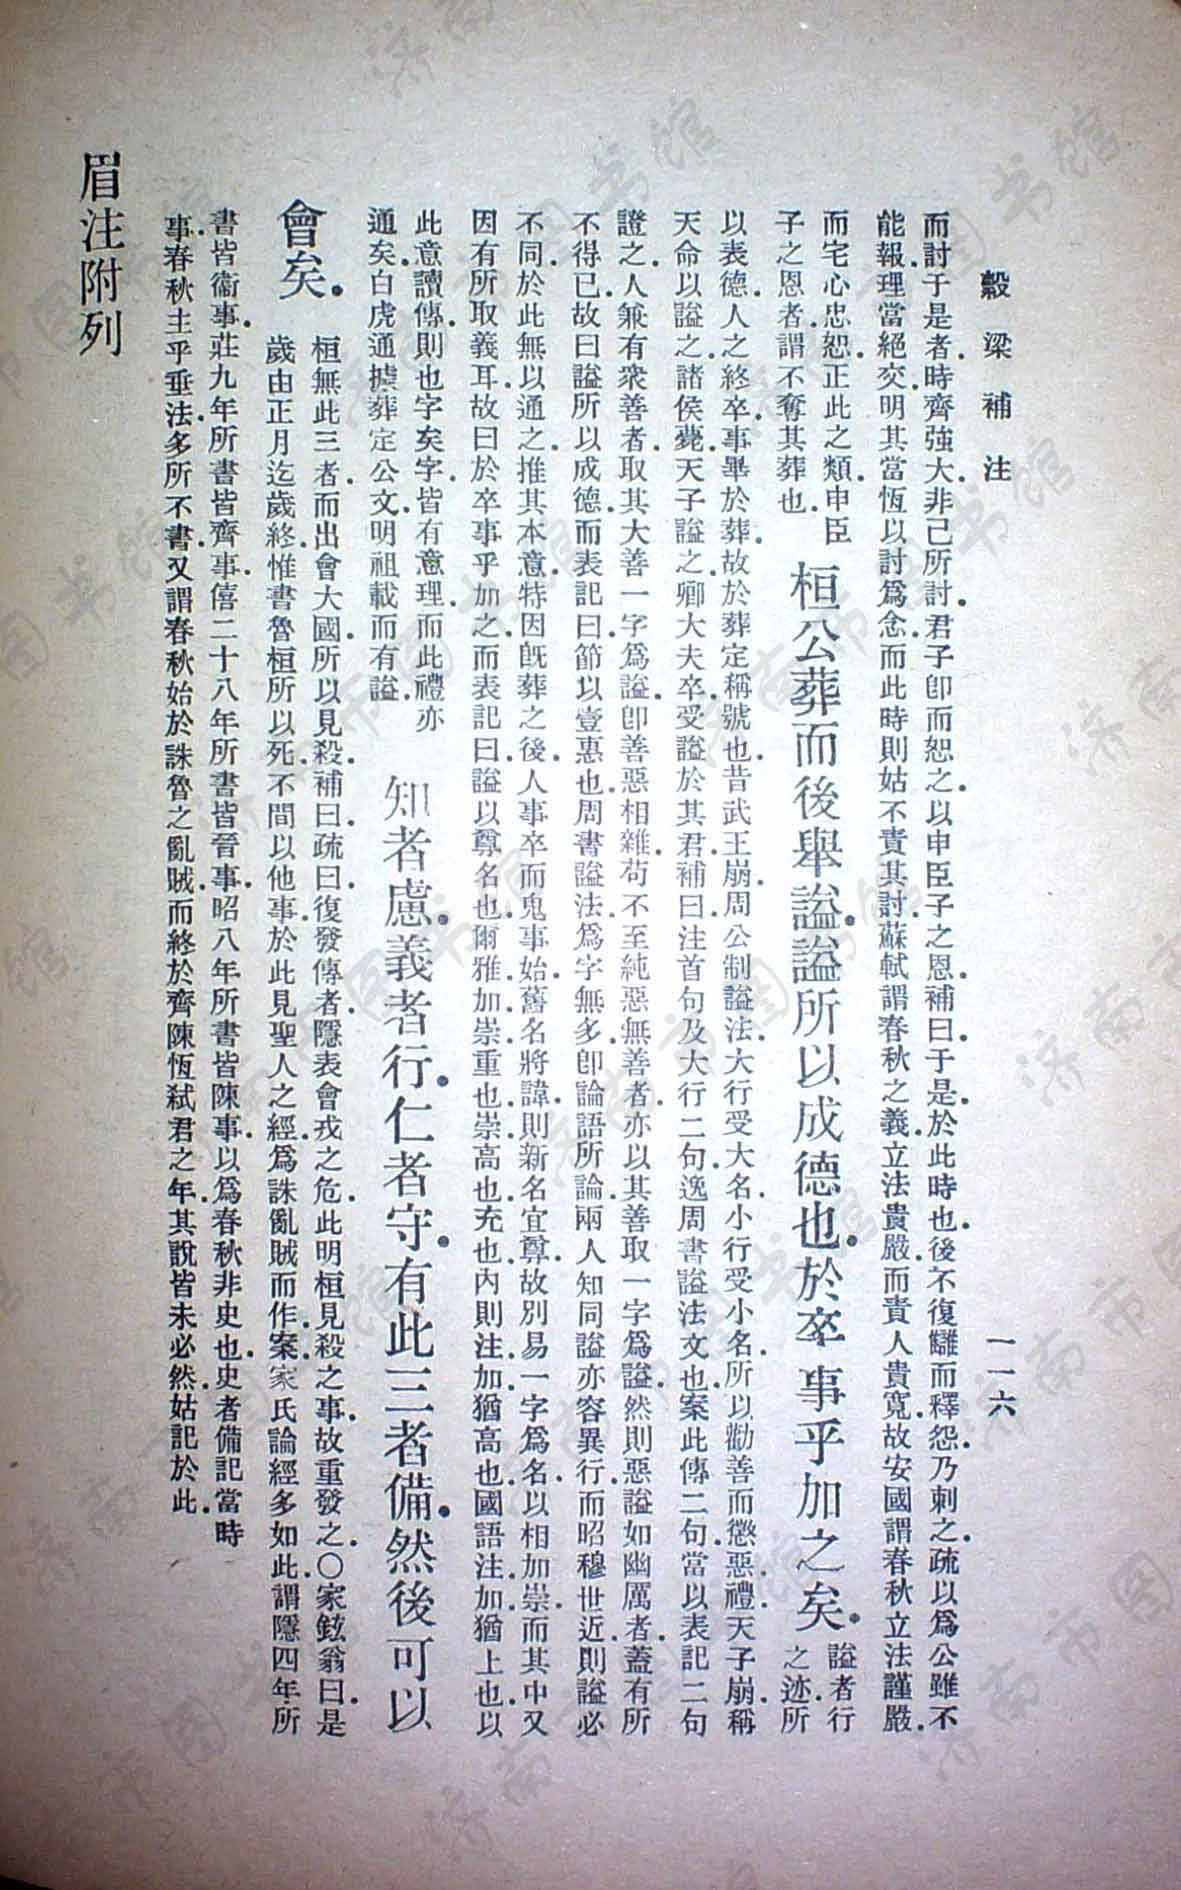 穀梁補注
一一六
而討于是者.時齊強大.非己所討.君子卽而恕之.以申臣子之恩.補曰.于是.於此時也.後不復讎而釋怨.乃刺之.疏以爲公雖不
能報.理當絕交.明其當恆以討爲念.而此時則姑不責其討.蘇軾謂春秋之義.立法貴嚴.而責人貴寬.故安國謂春秋立法謹嚴.
而宅心忠恕.正此之類.申臣
子之恩者.謂不奪其葬也.
桓公葬而後舉諡.諡所以成德也.於卒事乎加之矣.
諡者行
之迹.所
以表德.人之終卒.事畢於葬.故於葬定稱號也.昔武王崩.周公制諡法.大行受大名.小行受小名.所以勸善而懲惡.禮.天子崩.稱
天命以諡之.諸侯薨.天子諡之.卿大夫卒.受諡於其君.補曰.注首句及大行二句.逸周書諡法文也.案此傳二句.當以表記二句
證之.人兼有衆善者.取其大善一字爲諡.卽善惡相雜.苟不至純惡無善者.亦以其善取一字爲諡.然則惡諡如幽厲者.蓋有所
不得已.故曰諡所以成德.而表記曰.節以壹惠也.周書諡法.爲字無多.卽論語所論.兩人知同諡亦容異行.而昭穆世近.則諡必
不同.於此無以通之.推其本意.特因旣葬之後.人事卒而鬼事始.舊名將諱.則新名宜尊.故別易一字爲名.以相加崇.而其中又
因有所取義耳.故曰於卒事乎加之.而表記曰.諡以尊名也.爾雅.加.崇.重也.崇.高也.充也.內則注.加.猶高也.國語注.加.猶上也.以
此意讀傳.則也字矣字.皆有意理.而此禮亦
通矣.白虎通據葬定公文.明祖載而有諡.
知者慮.義者行.仁者守.有此三者備.然後可以
會矣.
桓無此三者.而出會大國.所以見殺.補曰.疏曰.復發傳者.隱表會戎之危.此明桓見殺之事.故重發之.〇家鉉翁曰.是
歲由正月迄歲終.惟書魯桓所以死.不間以他事.於此見聖人之經爲誅亂賊而作.案家氏論經多如此.謂隱四年所
書皆衞事.莊九年所書皆齊事.僖二十八年所書皆晉事.昭八年所書皆陳事.以爲春秋非史也.史者備記當時
事.春秋主乎垂法.多所不書.又謂春秋始於誅魯之亂賊.而終於齊陳恆弒君之年.其說皆未必然.姑記於此.
眉注附列